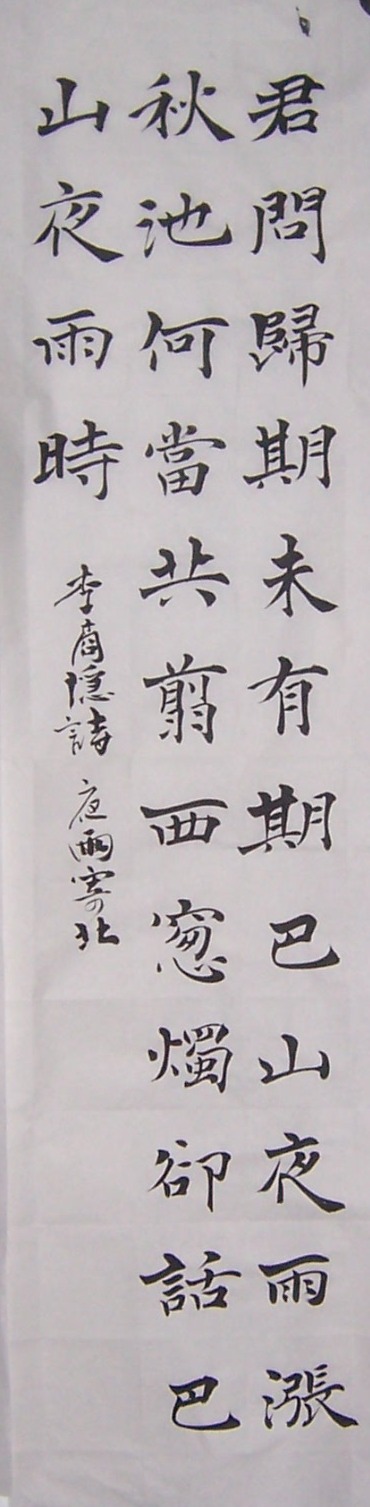 君問歸期未有期巴山夜雨漲
秋池何當共翦西窓燭卻話巴
山夜雨時
李商隱詩 夜雨寄北